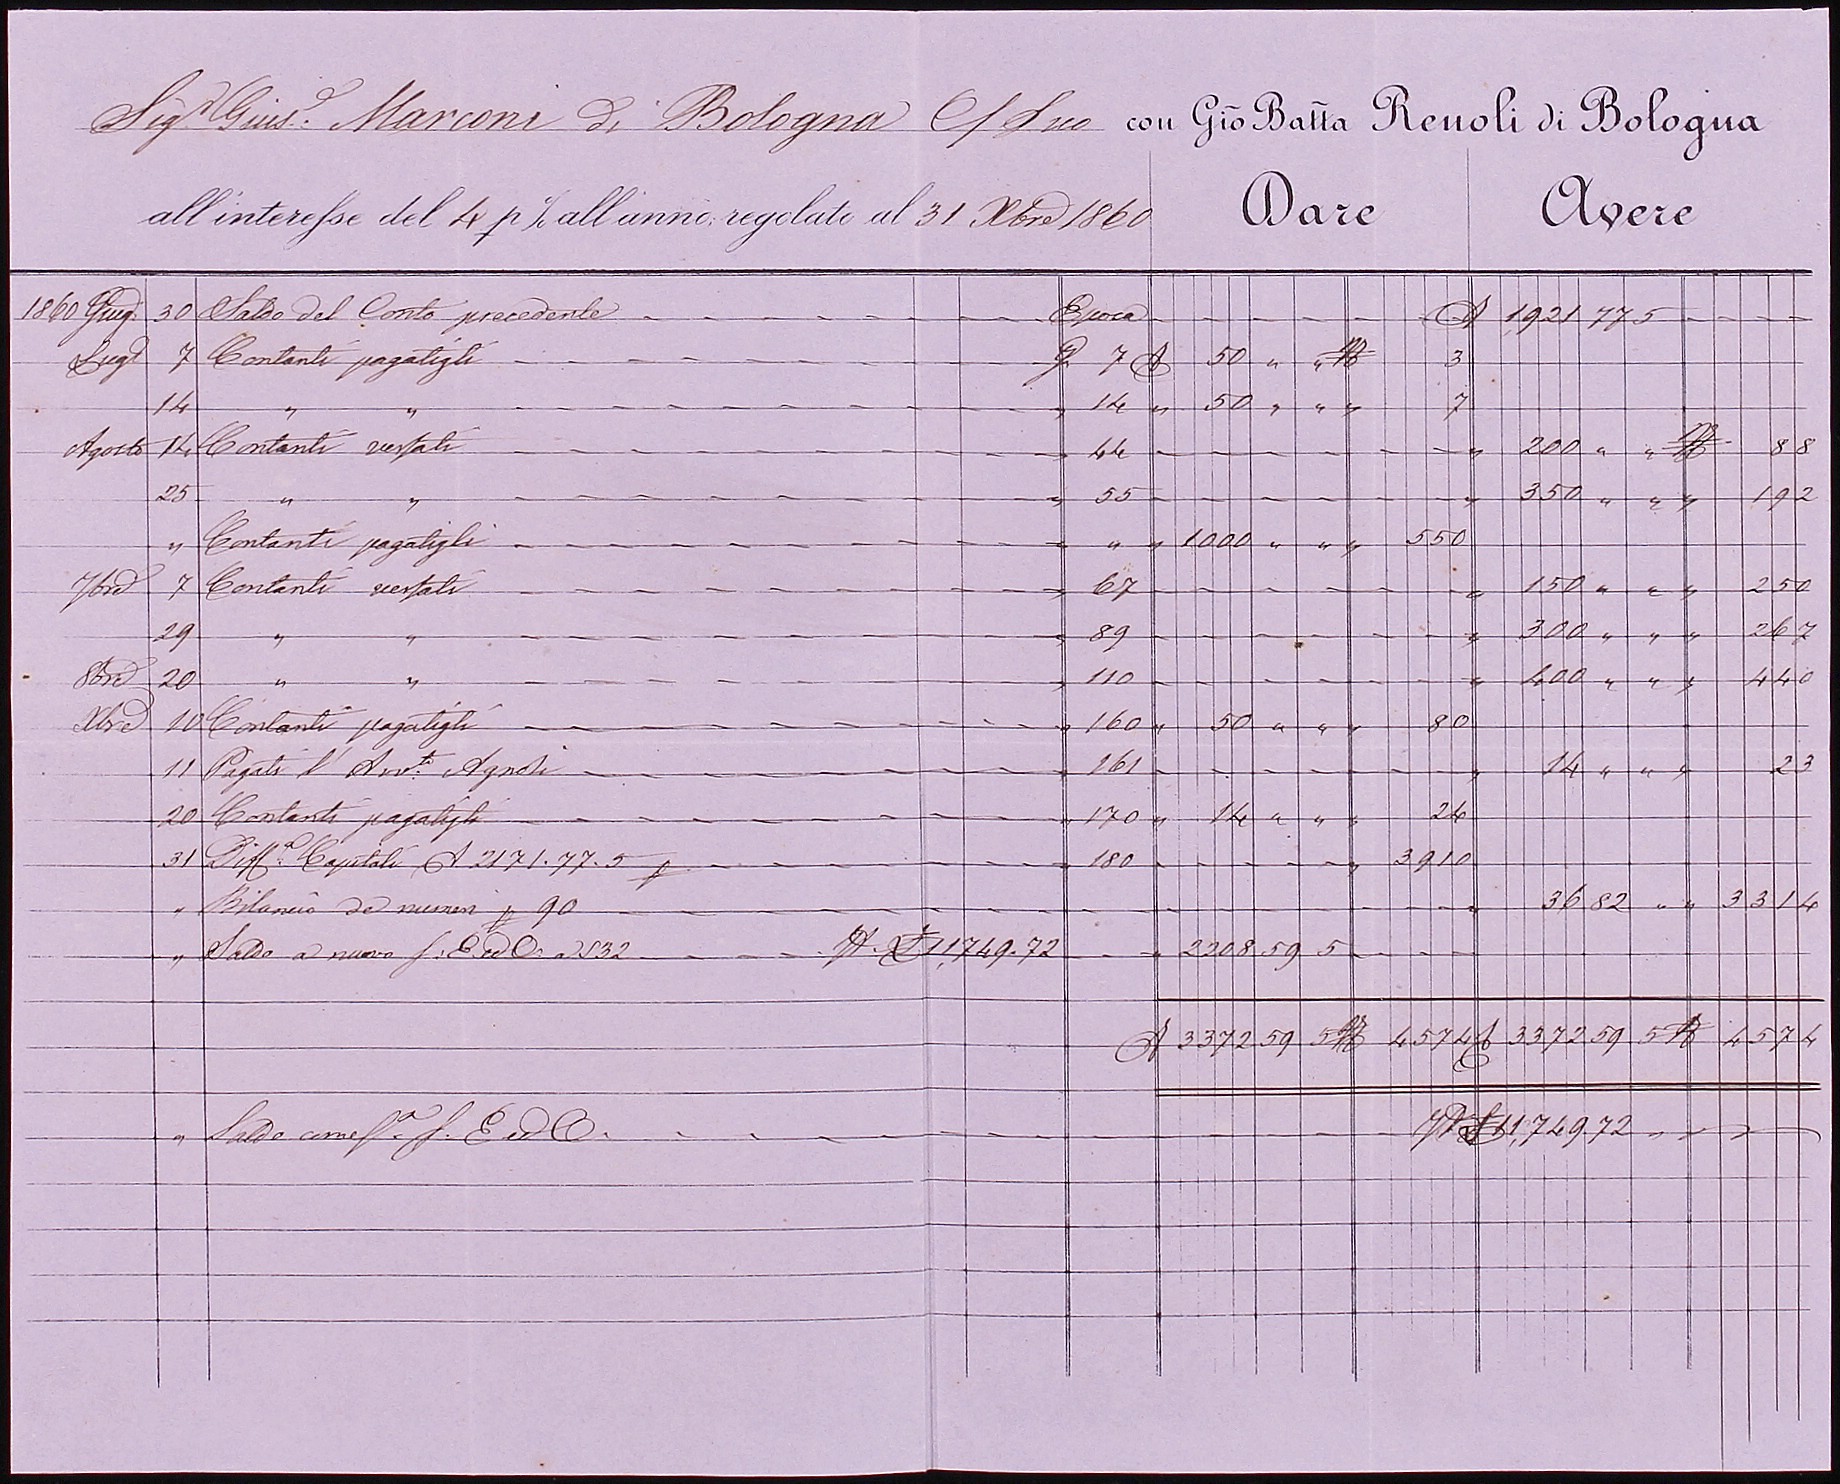 Sig.r Gius.e Marconi di Bologna C/ Suo con Gio Batta Renoli di Bologna
all'interesse del 4 p % all'anno, regolato al 31 Xbre 1860 Dare Avere
1860 Giug. 30 Saldo del Conto precedente Epoca 1921 77 5
Lugl 7 Contanti pagatigli G. 7 50 „ „ 3
14 „ „ „ 14 „ 50 „ „ „ 7
Agosto 14 Contanti versati „ 44 „ 200 „ „ 88
25 „ „ „ 55 „ 350 „ „ „ 192
„ Contanti pagatigli „ „ „ 1000 „ „ „ 550
7bre 7 Contanti versati „ 67 „ 150 „ „ „ 250
29 „ „ „ 89 „ 300 „ „ „ 267
8bre 20 „ „ „ 110 „ 400 „ „ „ 440
Xbre 10 Contanti pagatigli „ 160 „ 50 „ „ „ 80
11 Pagati l'Avv.to Agnoli „ 161 „ 14 „ „ „ 23
20 Contanti pagatigli „ 170 „ 14 „ „ „ 24
31 Diff.a Capitali 2171.77.5 p „ 180 „ 3910
„ Bilancio de numeri p 90 „ 36 82 „ „ 3314
„ Saldo a nuovo f. E ed O. a 532 11,749.72 „ 2208.59 5
3372 59 5 4574 3372 59 5 4574
„ Saldo come s.a f. E ed O. 11,749.72